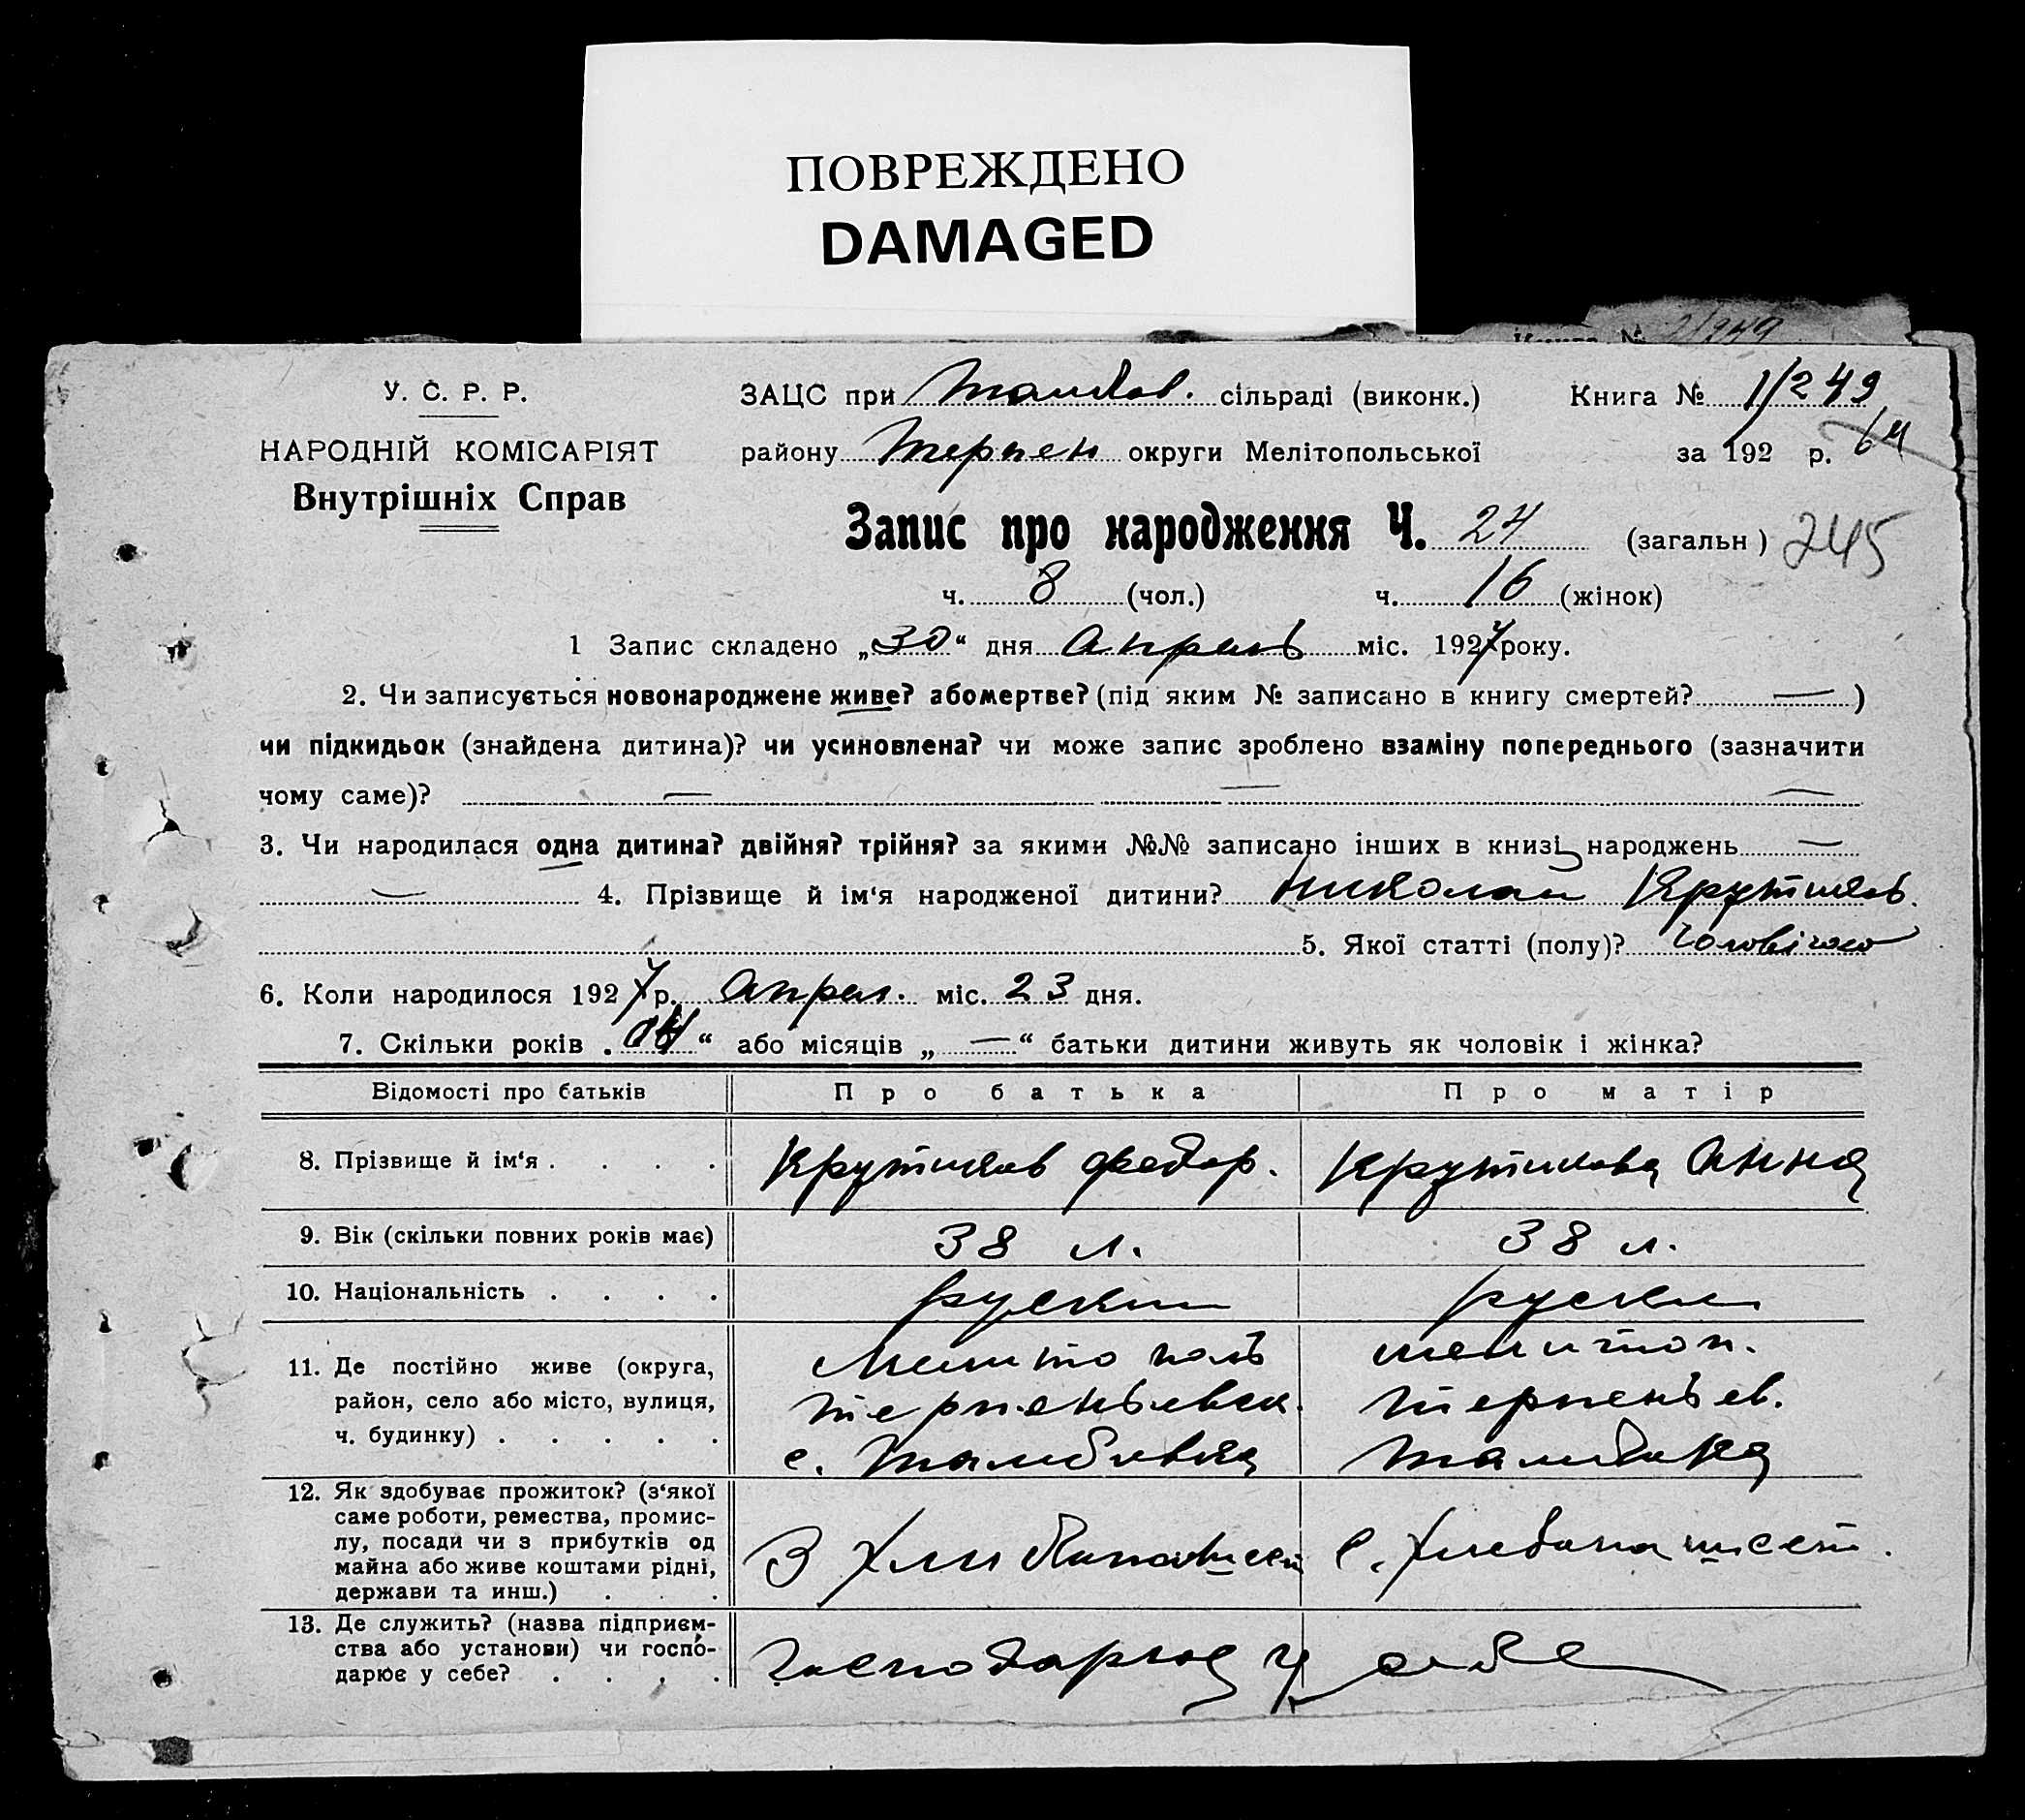 ПОВРЕЖДЕНО
DAMAGED
У. С. Р. Р.
НАРОДНІЙ КОМІСАРІЯТ
Внутрішніх Справ
ЗАЦС при Тамбов. сільраді (виконк.)
Книга № 1/249
району Терпен округи Мелітопольської
за 192 р.
Запис про народження Ч. 24 (загальн) 245
ч. 8 (чол.) ч. 16 (жінок)
1 Запис складено „30“ дня Апрель міс. 1927 року.
2. Чи записується новонароджене живе? або мертве? (під яким № записано в книгу смертей? — )
чи підкидьок (знайдена дитина)? чи усиновлена? чи може запис зроблено взаміну попереднього (зазначити
чому саме)? — — —
3. Чи народилася одна дитина? двійня? трійня? за якими №№ записано інших в книзі народжень —
— 4. Прізвище й ім‘я народженої дитини? Николай Крутиков
5. Якої статті (полу)? Чоловічого
6. Коли народилося 1927 р. Апрел. міс. 23 дня.
7. Скільки років “ або місяців „ — “ батьки дитини живуть як чоловік і жінка?
Відомості про батьків Про батька Про матір
8. Прізвище й ім‘я . . . . Крутиков Федор. Крутикова Анна
9. Вік (скільки повних років має) 38 л. 38 л.
10. Національність . . . . руский руская
11. Де постійно живе (округа,
район, село або місто, вулиця,
ч. будинку) . . . . .
Мелитополь
Терпеньевск.
с. Тамбовка
мелитоп.
Терпеньев.
Тамбовка
12. Як здобуває прожиток? (з‘якої
саме роботи, ремества, промис-
лу, посади чи з прибутків од
майна або живе коштами рідні,
держави та инш.) . . .
З Хлибопашест С. Хлебопашест.
13. Де служить? (назва підприєм-
ства або установи) чи госпо-
дарює у себе? . . . .
Господарюе у себе